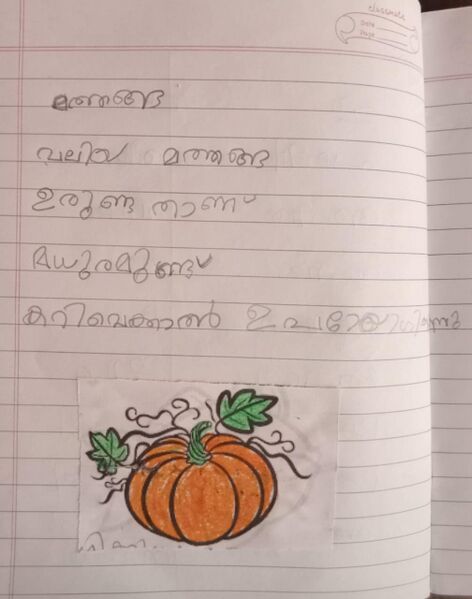 classmate
Date
Page
മത്തങ്ങ
വലിയ മത്തങ്ങ
ഉരുണ്ട താണ്
മധുരമുണ്ട്
കറിവെക്കാൻ ഉപയോഗിക്കുന്നു